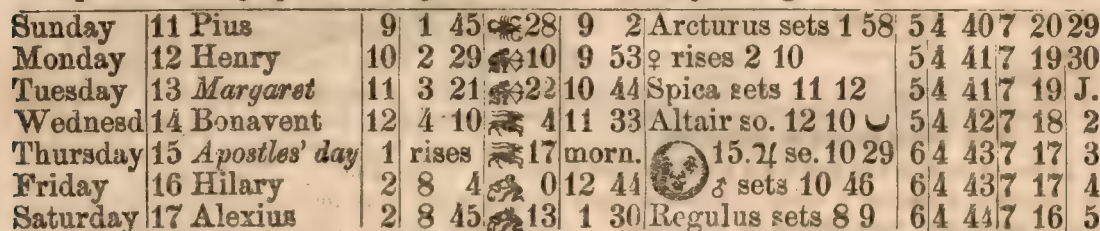 Sunday 11 Pius 9 1 45 28 9 2 Arcturus sets 1 58 5 4 40 7 20 29
Monday 12 Henry 10 2 29 10 9 53 ♀ rises 2 10 5 4 41 7 19 30
Tuesday 13 Margaret 11 3 21 22 10 44 Spica sets 11 12 5 4 41 7 19 J.
Wednesd 14 Bonavent 12 4 10 4 11 33 Altair so. 12 10 5 4 42 7 18 2
Thursday 15 Apostles' day 1 rises 17 morn. 15. ♃ se. 10 29 6 4 43 7 17 3
Friday 16 Hilary 2 8 4 0 12 44 ♂ sets 10 46 6 4 43 7 17 4
Saturday 17 Alexius 2 8 45 13 1 30 Regulus sets 8 9 6 4 44 7 16 5